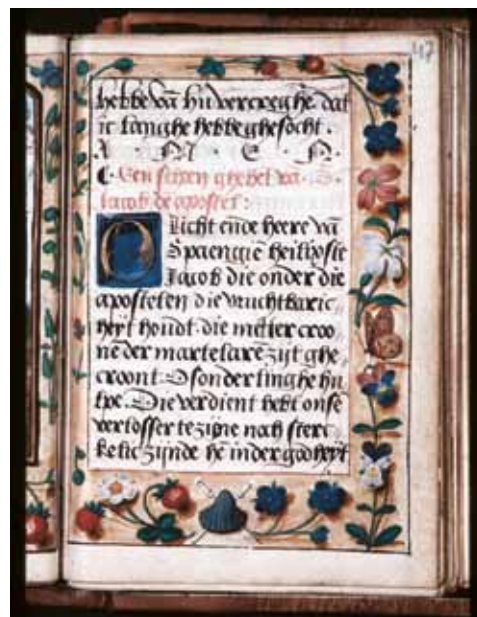 47
hebbe vā hu vercreghe. dat
ic langhe hebbe ghesocht.
A · M · E · N ·
Een schoen ghebet va S.
Jacob de apostel:
O Licht ende heere vā
Spaengiē heilighste
Jacob die onder die
apostelen die vruchtbaric
heyt houdt. die metter croo
ne der martelarē zijt ghe
croont. O sonderlinghe hu
lpe. Die verdient hebt onsē
verlosser te zijne nach sterf
zijnde in der godheyt